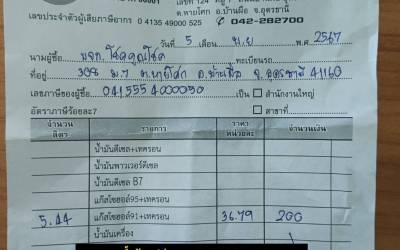 เลขประจำตัวผู้เสียภาษีอากร 0 4135 49000 525
ต.หายโศก อ.บ้านผือ จ.อุดรธานี
042-282700
วันที่ 5 เดือน พ.ย พ.ศ. 2567
นามผู้ซื้อ หจก. โชคคูณโชค ทะเบียนรถ
ที่อยู่ 308 ม.7 ต.หายโศก อ.บ้านผือ จ.อุดรธานี 41160
เลขภาษีของผู้ซื้อ เป็น สำนักงานใหญ่
อัตราภาษีร้อยละ7 สาขาที่
จำนวน ลิตร รายการ ราคา หน่วยละ จำนวนเงิน
น้ำมันดีเซล+เทครอน
น้ำมันพาวเวอร์ดีเซล
น้ำมันดีเซล B7
แก๊สโซฮอล์95+เทครอน
5.44 แก๊สโซฮอล์91+เทครอน 36.79 200
น้ำมันเครื่อง